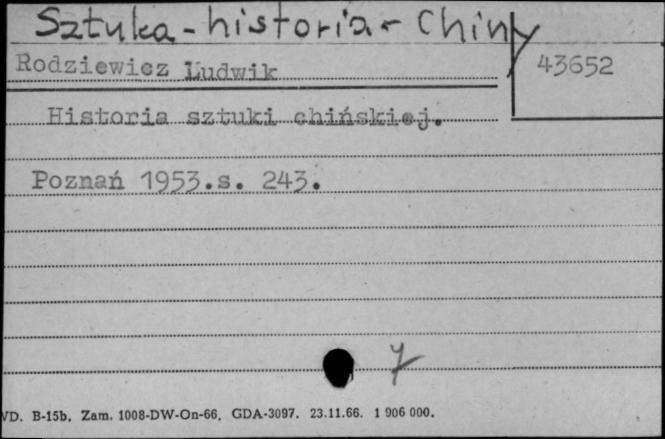 Sztuka - historia - Chiny
Rodziewicz Ludwik
43652
Historia sztuki chińskiej.
Poznań 1953.s. 243.
7
VD. B-15b. Zam. 1008-DW-On-66. GDA-3097. 23.11.66. 1 906 000.